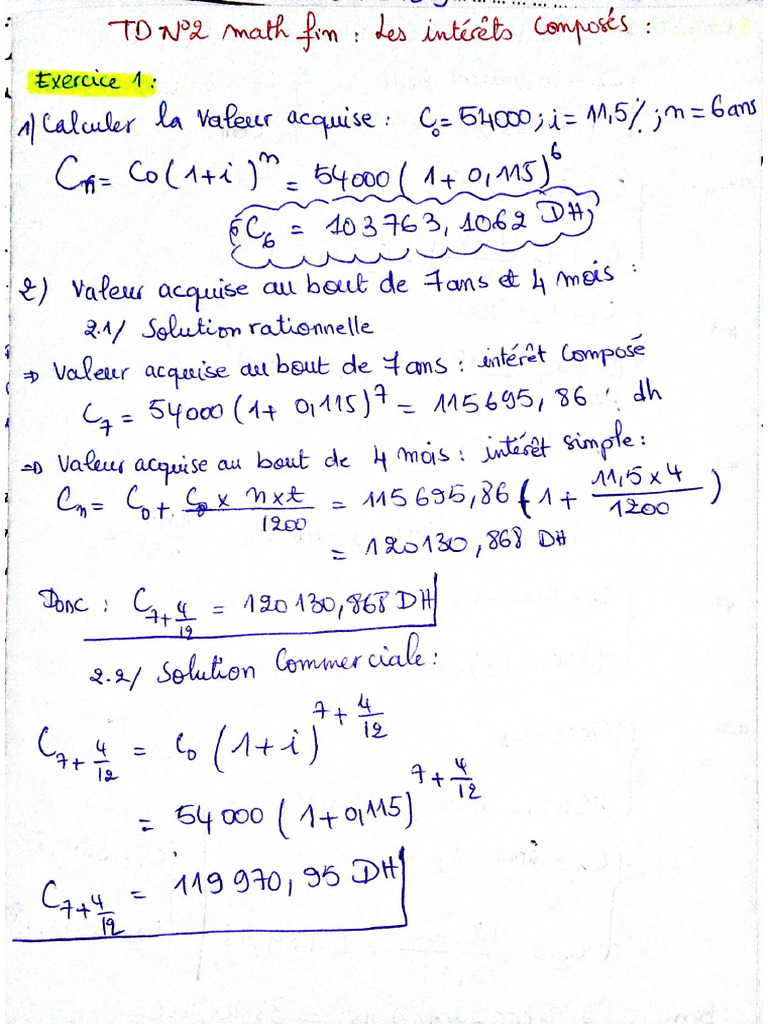 TD N°2 math fin : Les intérêts composés :
Exercice 1 :
1) Calculer la valeur acquise : C₀ = 54000 ; i = 11,5% ; n = 6 ans
Cn = C0 (1+i)ⁿ = 54000 (1 + 0,115)⁶
C₆ = 103763,1062 DH
2) Valeur acquise au bout de 7 ans et 4 mois :
2.1/ Solution rationnelle
⇒ Valeur acquise au bout de 7 ans : intérêt composé
C₇ = 54000 (1 + 0,115)⁷ = 115695,86 dh
⇒ Valeur acquise au bout de 4 mois : intérêt simple :
Cn = C₀ + C₀ × n × t / 1200 = 115695,86 (1 + 11,5 × 4 / 1200)
= 120130,868 DH
Donc : C₇₊₄/₁₂ = 120130,868 DH
2.2/ Solution Commerciale :
C₇₊₄/₁₂ = C₀ (1+i)^7+4/12
= 54000 (1 + 0,115)^7+4/12
C₇₊₄/₁₂ = 119970,95 DH